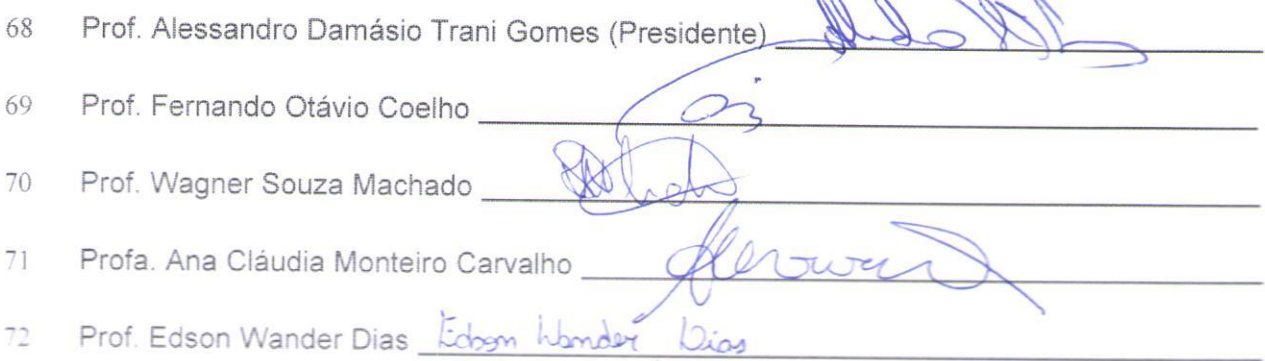 68 Prof. Alessandro Damásio Trani Gomes (Presidente)
69 Prof. Fernando Otávio Coelho
70 Prof. Wagner Souza Machado
71 Profa. Ana Cláudia Monteiro Carvalho
72 Prof. Edson Wander Dias Edson Wander Dias